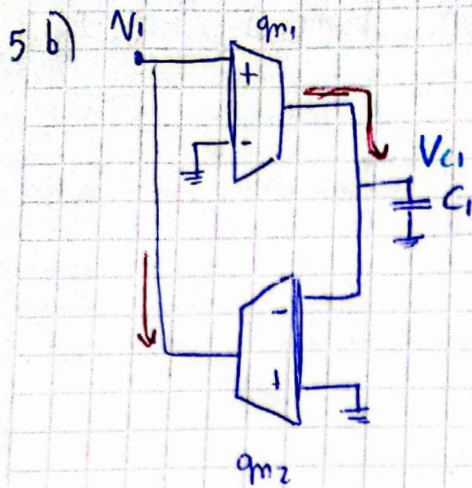 5 b)
V1
gm1
+
-
VC1
C1
-
+
gm2